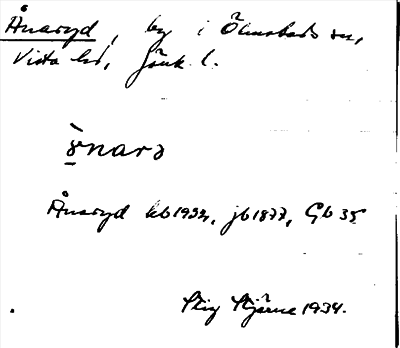 Ånaryd, by i Ölmstads sn,
Vista hd, Jönk. l.
Ånaryd kb 1932, jb 1877, Gb 35
Stig Stjerne 1934.